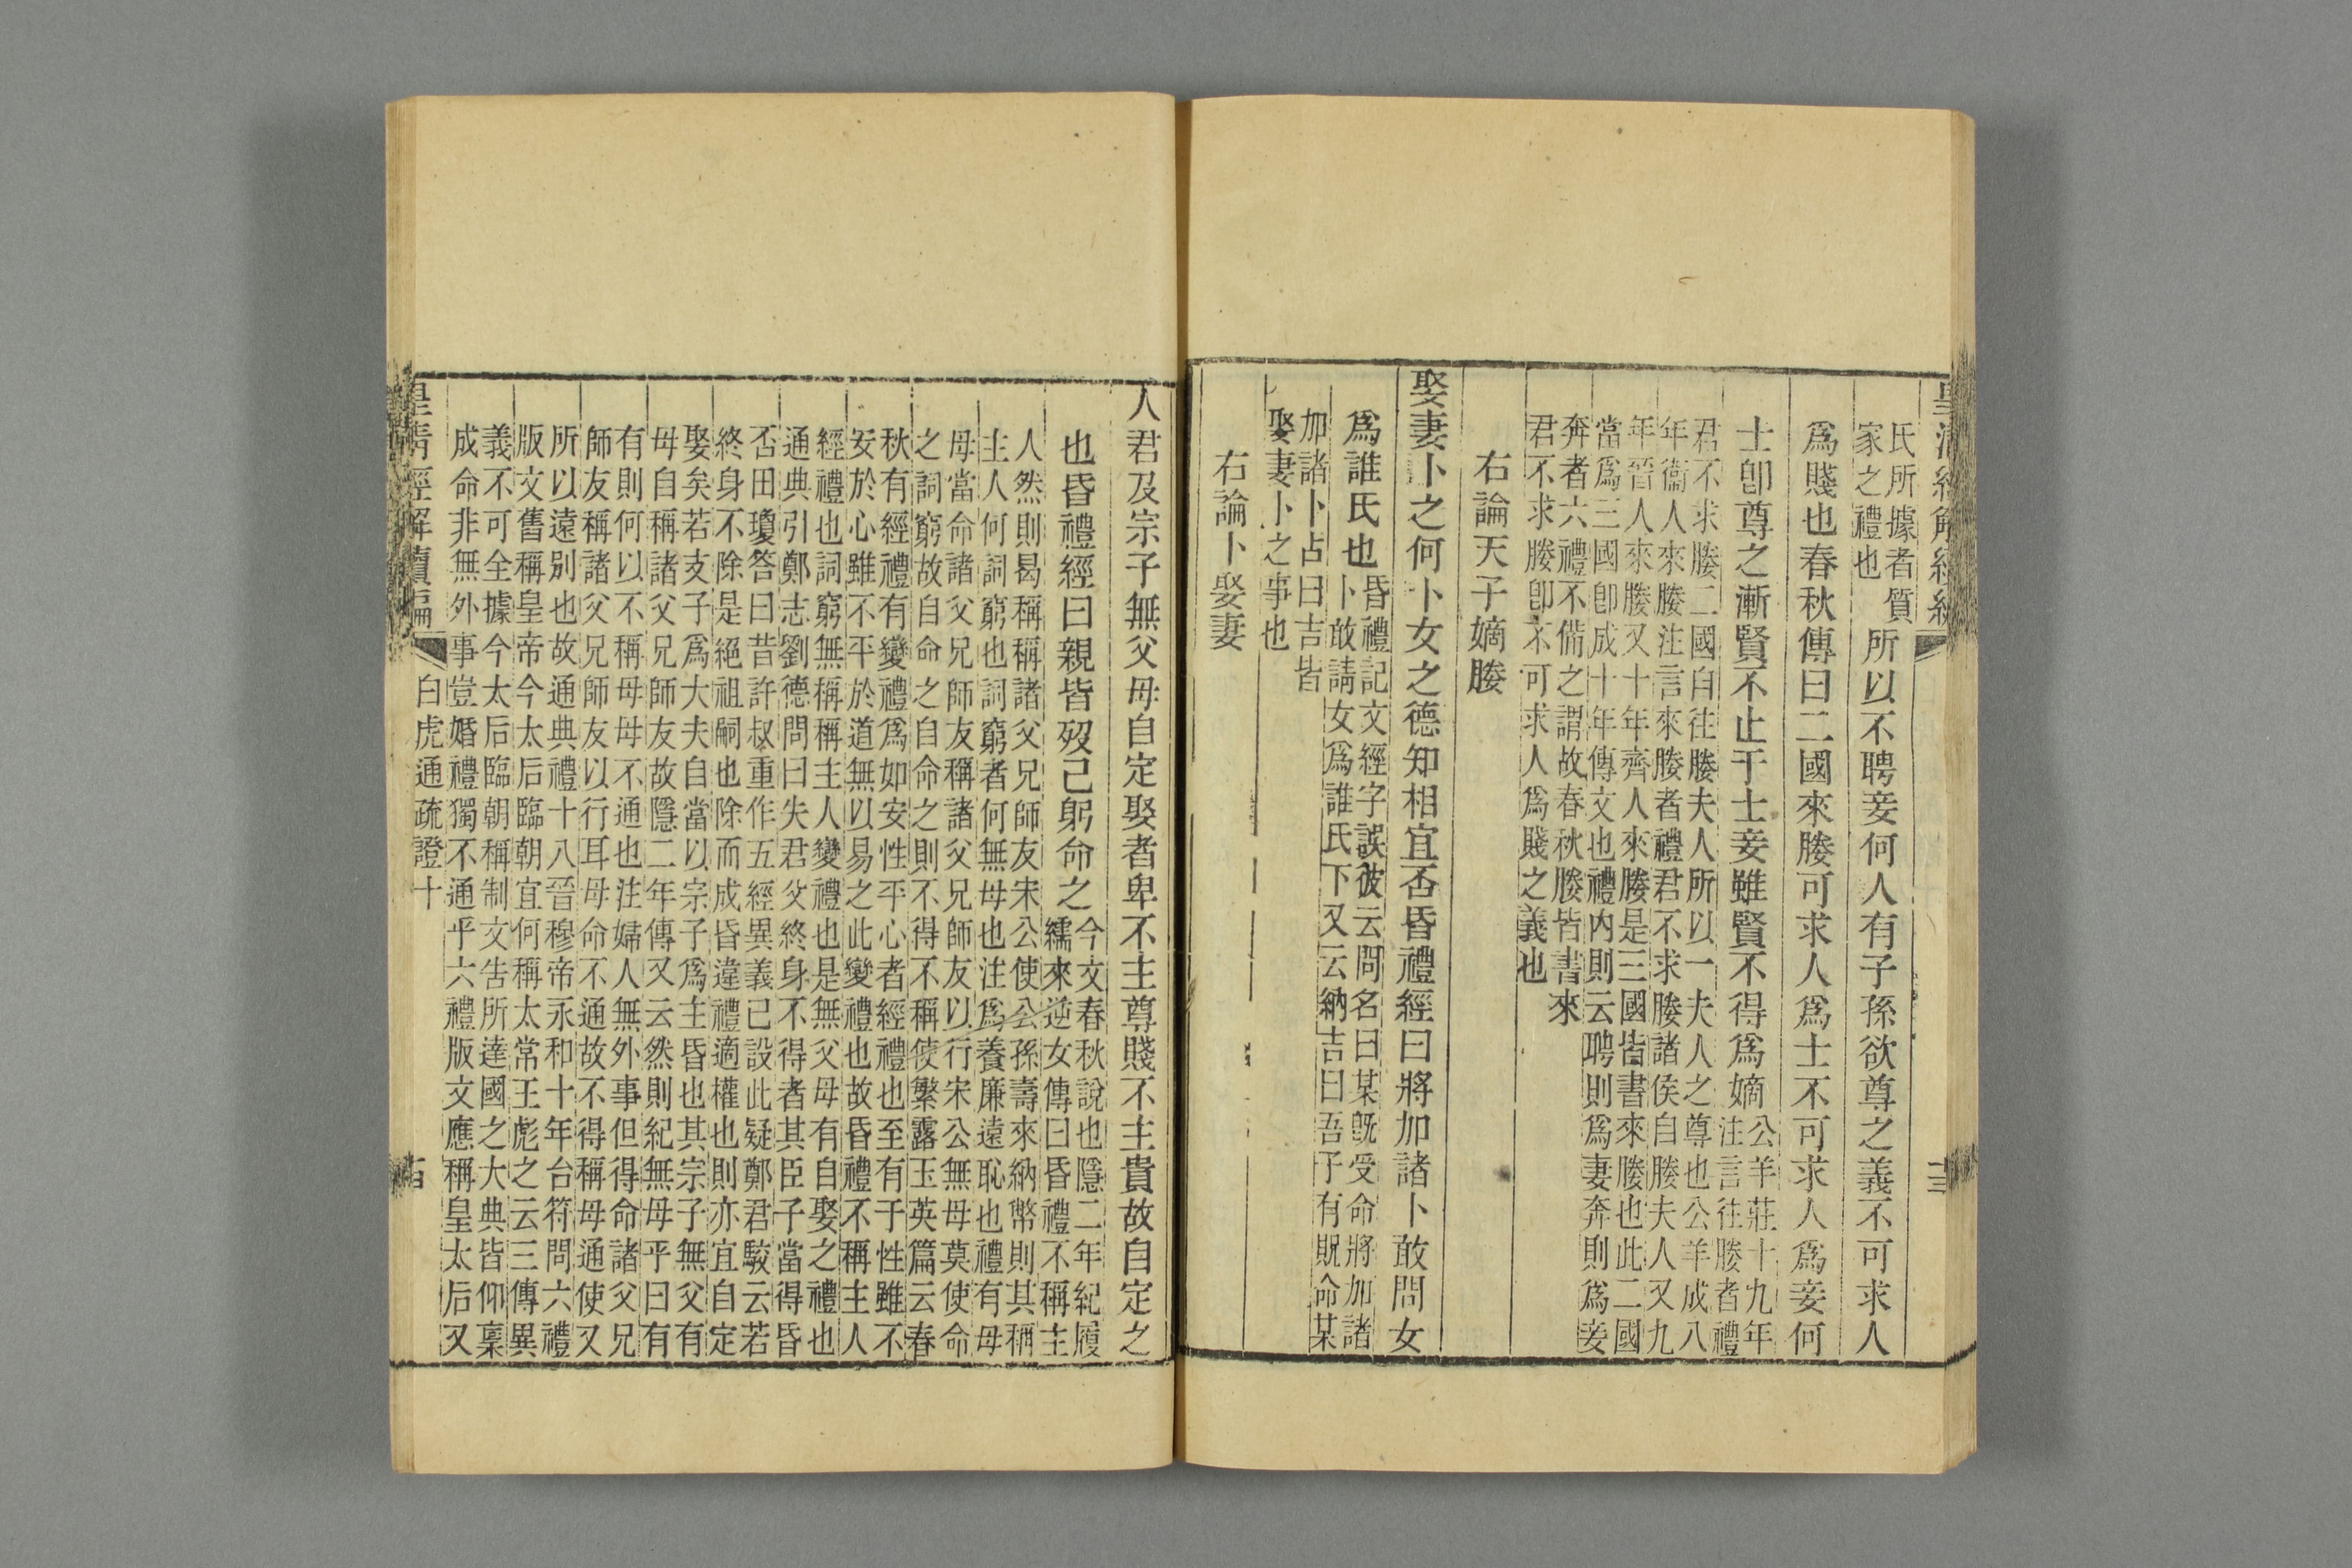 氏所據者質
家之禮也
所以不聘妾何人有子孫欲尊之義不可求人
爲賤也春秋傳曰二國來媵可求人爲士不可求人爲妾何
士卽尊之漸賢不止于士妾雖賢不得爲嫡
公羊莊十九年
注言往媵者禮
君不求媵二國自往媵夫人所以一夫人之尊也公羊成八
年衞人來媵注言來媵者禮君不求媵諸侯自媵夫人又九
年晉人來媵又十年齊人來媵是三國皆書來媵也此二國
當爲三國卽成十年傳文也禮內則云聘則爲妻奔則爲妾
奔者六禮不備之謂故春秋媵皆書來
君不求媵卽不可求人爲賤之義也
右論天子嫡媵
娶妻卜之何卜女之德知相宜否昏禮經曰將加諸卜敢問女
爲誰氏也
昏禮記文經字誤彼云問名曰某旣受命將加諸
卜敢請女爲誰氏下又云納吉曰吾子有貺命某
加諸卜占曰吉皆
娶妻卜之事也
右論卜娶妻
人君及宗子無父母自定娶者卑不主尊賤不主貴故自定之
也昏禮經曰親皆歿己躬命之
今文春秋說也隱二年紀履
繻來逆女傳曰昏禮不稱主
人然則曷稱稱諸父兄師友宋公使公孫壽來納幣則其稱
主人何詞窮也詞窮者何無母也注爲養廉遠恥也禮有母
母當命諸父兄師友稱諸父兄師友以行宋公無母莫使命
之詞窮故自命之自命之則不得不稱使繁露玉英篇云春
秋有經禮有變禮爲如安性平心者經禮也至有于性雖不
安於心雖不平於道無以易之此變禮也故昏禮不稱主人
經禮也詞窮無稱稱主人變禮也是無父母有自娶之禮也
通典引鄭志劉德問曰失君父終身不得者其臣子當得昏
否田瓊答曰昔許叔重作五經異義已設此疑鄭君駮云若
終身不除是絕祖嗣也除而成昏違禮適權也則亦宜自定
娶矣若支子爲大夫自當以宗子爲主昏也其宗子無父有
母自稱諸父兄師友故隱二年傳又云然則紀無母乎曰有
有則何以不稱母母不通也注婦人無外事但得命諸父兄
師友稱諸父兄師友以行耳母命不通故不得稱母通使又
所以遠別也故通典禮十八晉穆帝永和十年台符問六禮
版文舊稱皇帝今太后臨朝宜何稱太常王彪之云三傳異
義不可全據今太后臨朝稱制文告所達國之大典皆仰稟
成命非無外事豈婚禮獨不通乎六禮版文應稱皇太后又
皇清經解續編
白虎通疏證十